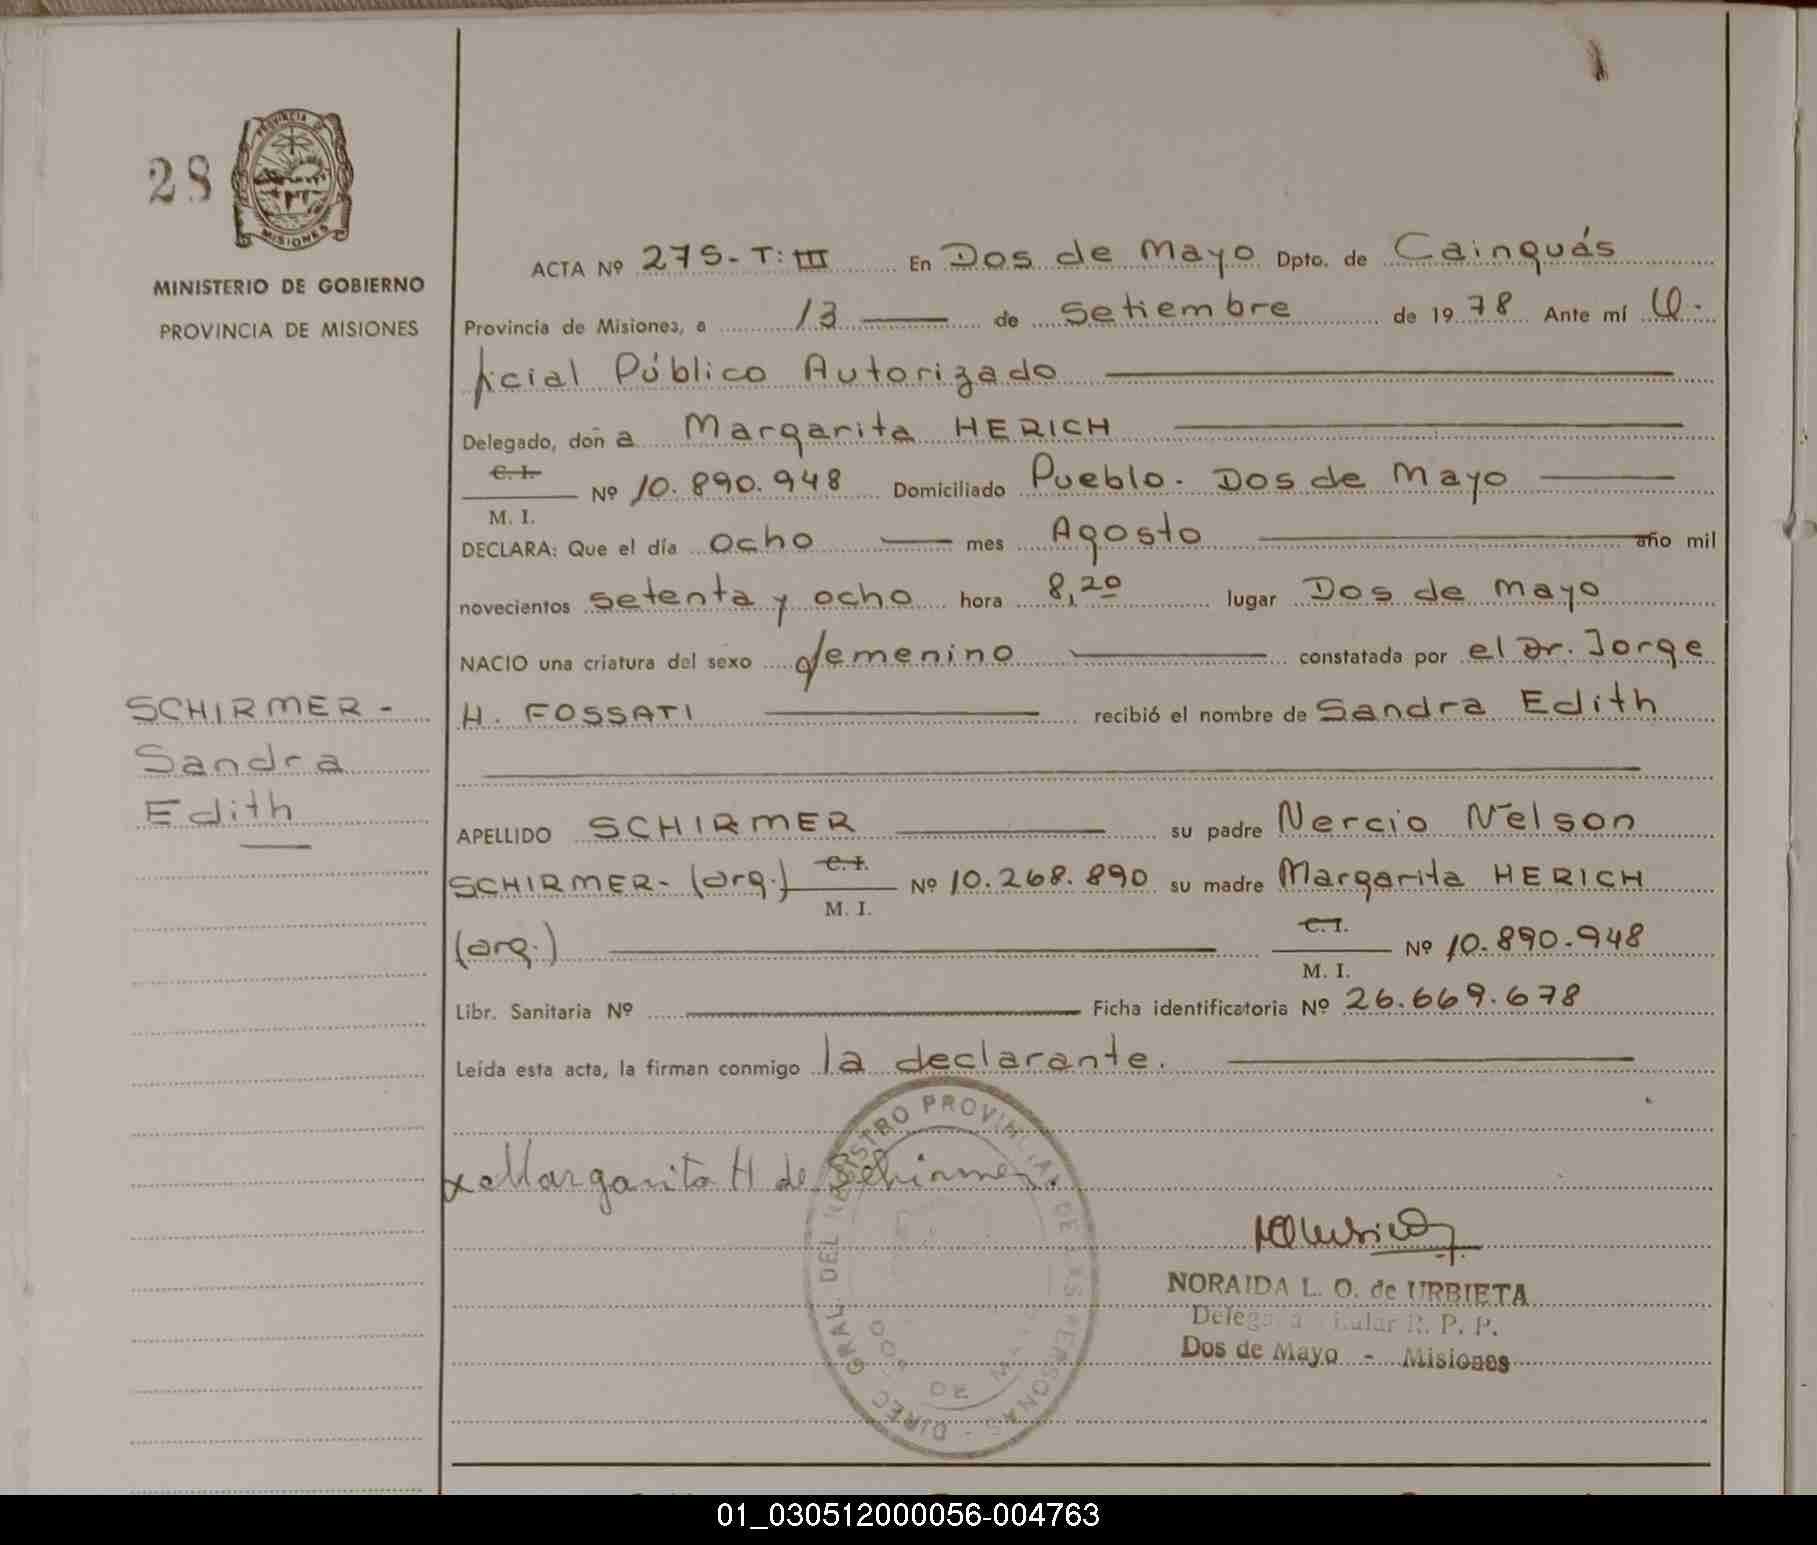 28
PROVINCIA DE
MISIONES
MINISTERIO DE GOBIERNO
PROVINCIA DE MISIONES
ACTA Nº 275-T:III En Dos de Mayo Dpto. de Cainguás
Provincia de Misiones, a 13 de Setiembre de 1978 Ante mí O-
ficial Público Autorizado
Delegado, doña Margarita HERICH
C. I.
M. I. Nº 10.890.948 Domiciliado Pueblo. Dos de Mayo
DECLARA: Que el día ocho mes Agosto año mil
novecientos setenta y ocho hora 8,20 lugar Dos de Mayo
NACIO una criatura del sexo femenino constatada por el Dr. Jorge
H. FOSSATI recibió el nombre de Sandra Edith
SCHIRMER-
Sandra
Edith
APELLIDO SCHIRMER su padre Nercio Nelson
SCHIRMER- (arg.) C. I.
M. I. Nº 10.268.890 su madre Margarita HERICH
(arg.) C. I.
M. I. Nº 10.890.948
Libr. Sanitaria Nº Ficha identificatoria Nº 26.669.678
Leída esta acta, la firman conmigo la declarante.
x Margarita H de Schirmer.
DIREC. GRAL. DEL REGISTRO PROVINCIAL DE LAS PERSONAS -
DOS DE MAYO
NORAIDA L. O. de URBIETA
R. P. P.
Dos de Mayo - Misiones
01_030512000056-004763